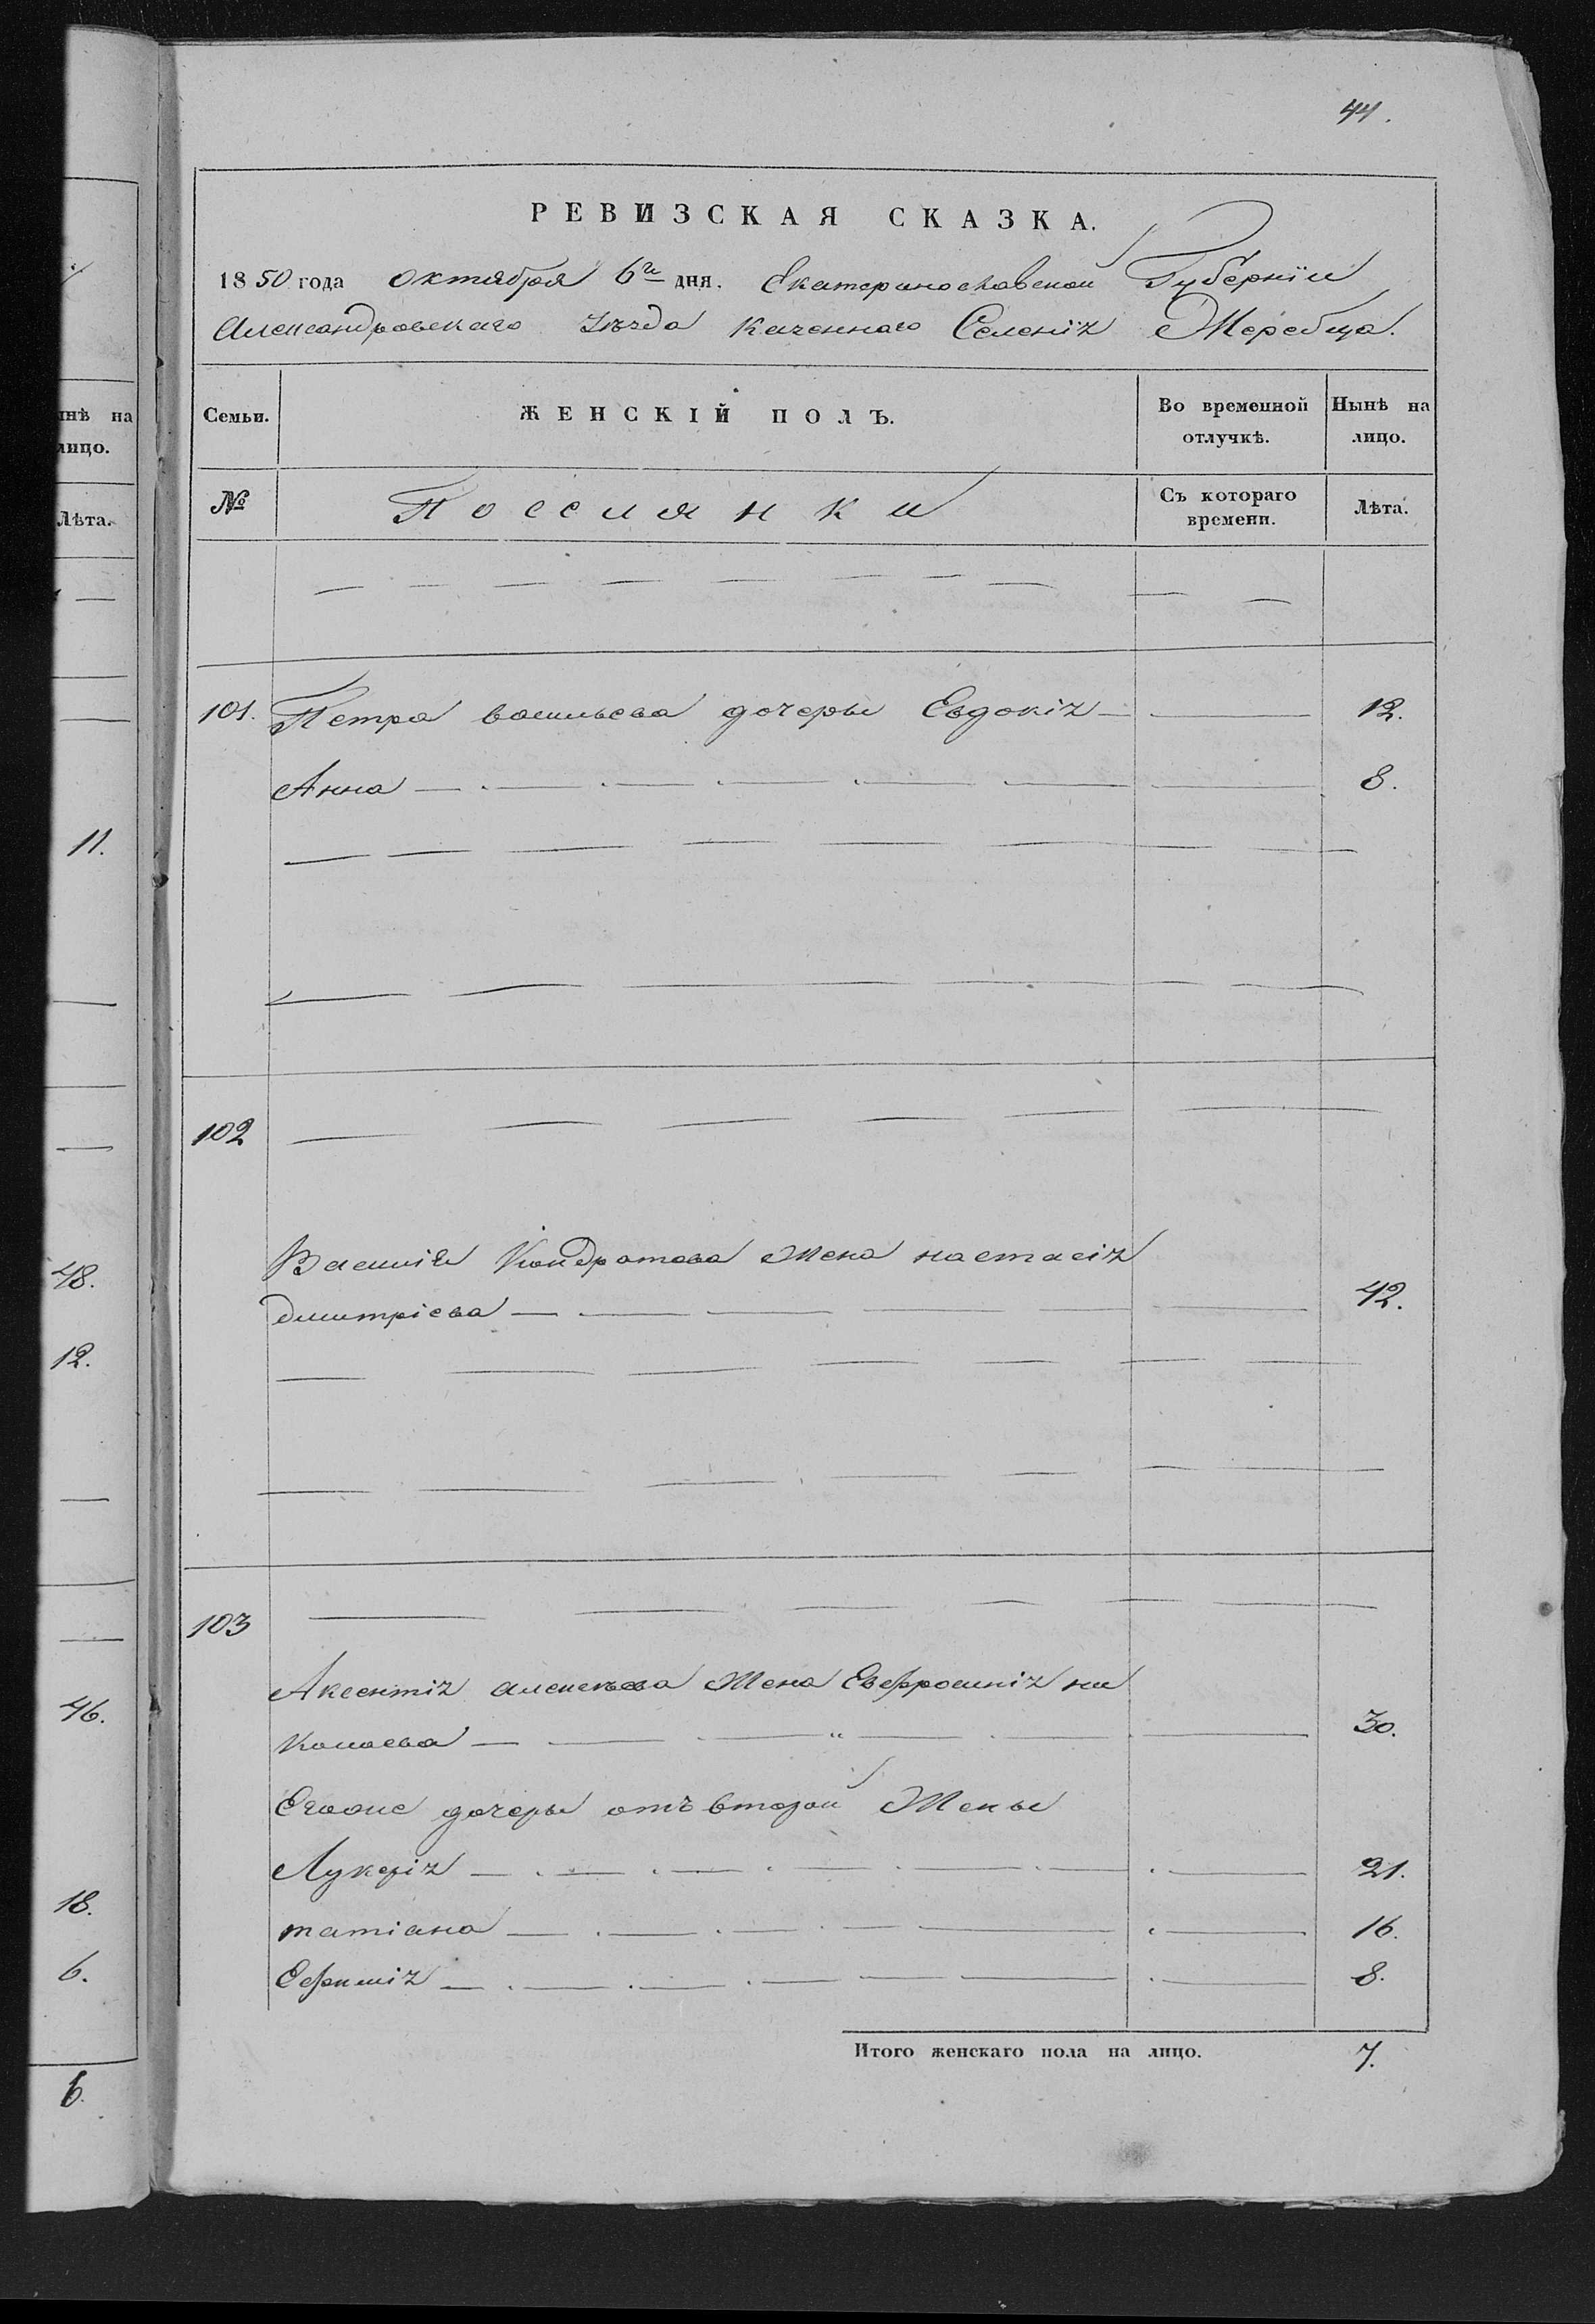 44.
РЕВИЗСКАЯ СКАЗКА.
1850 года октября 6го дня. Екатеринославской Губерніи
Александровскаго Уѣзда Казеннаго Селенія Жеребца.
Семьи.
ЖЕНСКІЙ ПОЛЪ.
Во временной отлучкѣ.
Нынѣ на лицо.
№
Поселянки
Съ котораго времени.
Лѣта.
101. Петра васильева дочеры Евдокія 12.
Анна 8.
102
Василія Кондратова Жена настасія
дмитріева 42.
103
Аксентія алексѣева Жена Евфросинія ни
колаева 30.
Егооне дочеры отъ второй Жены
Лукерія 21.
татіана 16.
Ефимія 8.
Итого женскаго пола на лицо. 7.
ынѣ на
лицо.
Лѣта.
11.
48.
12.
46.
18.
6.
6.